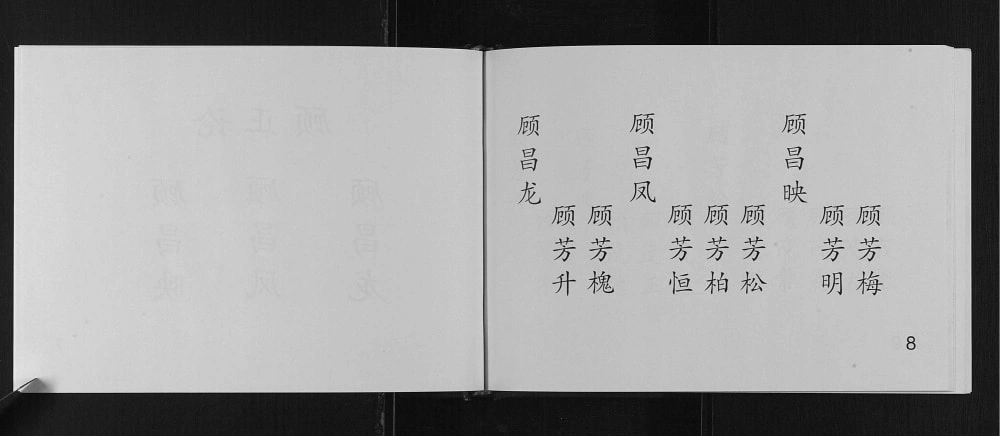 顾昌龙
顾芳升
顾芳槐
顾昌凤
顾芳恒
顾芳柏
顾芳松
顾昌映
顾芳明
顾芳梅
8